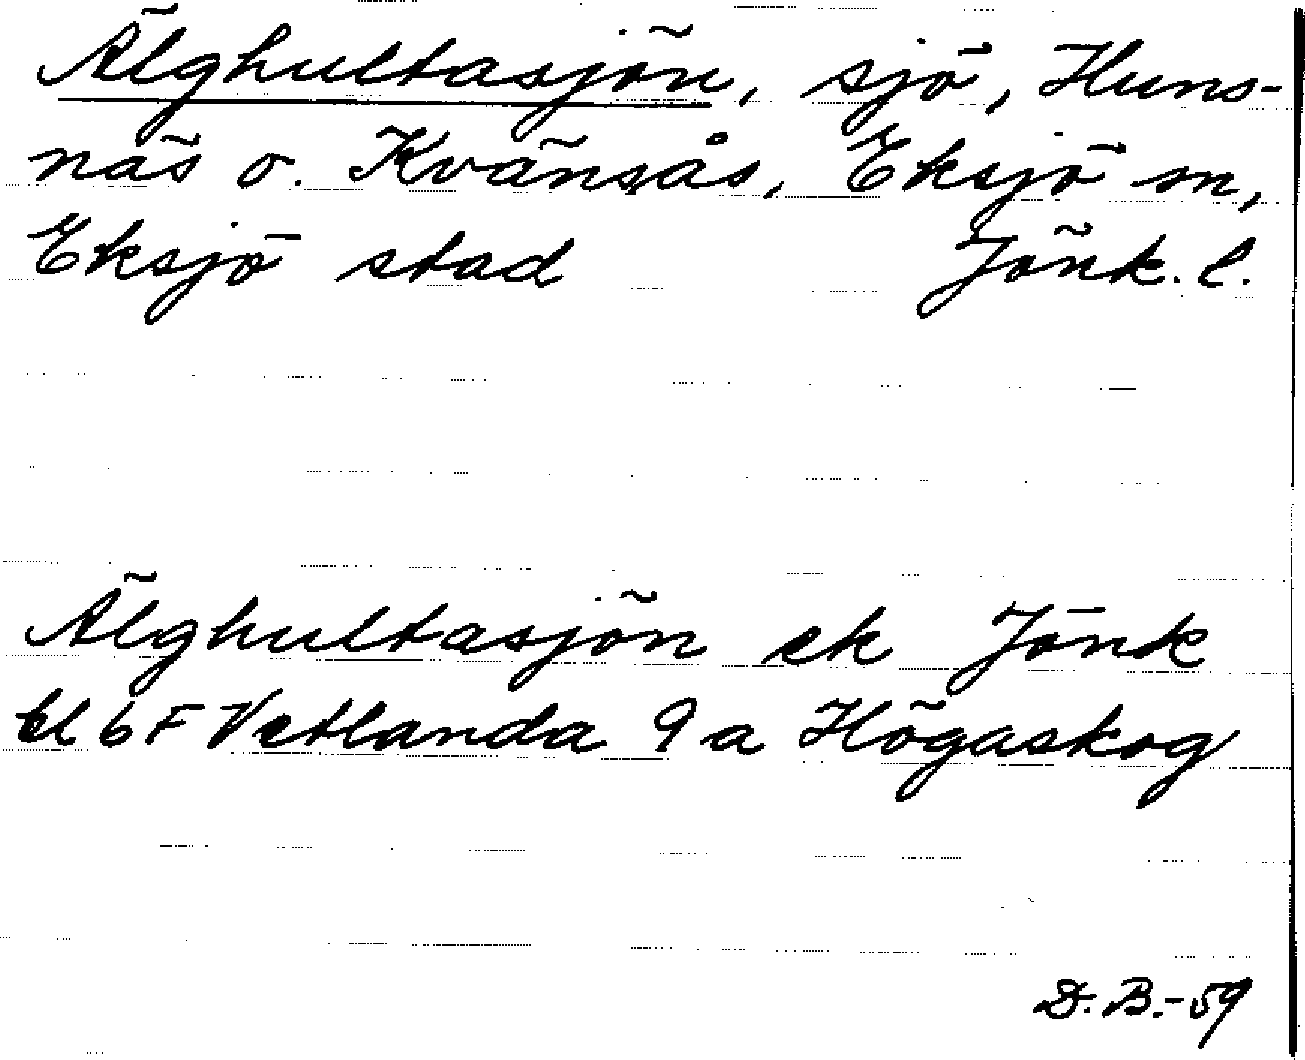 Älghultasjön, sjö, Huns-
näs o. Kvänsås, Eksjö sn,
Eksjö stad Jönk. l.
Älghultasjön ek Jönk
bl 6F Vetlanda 9a Högaskog
D.B.-59